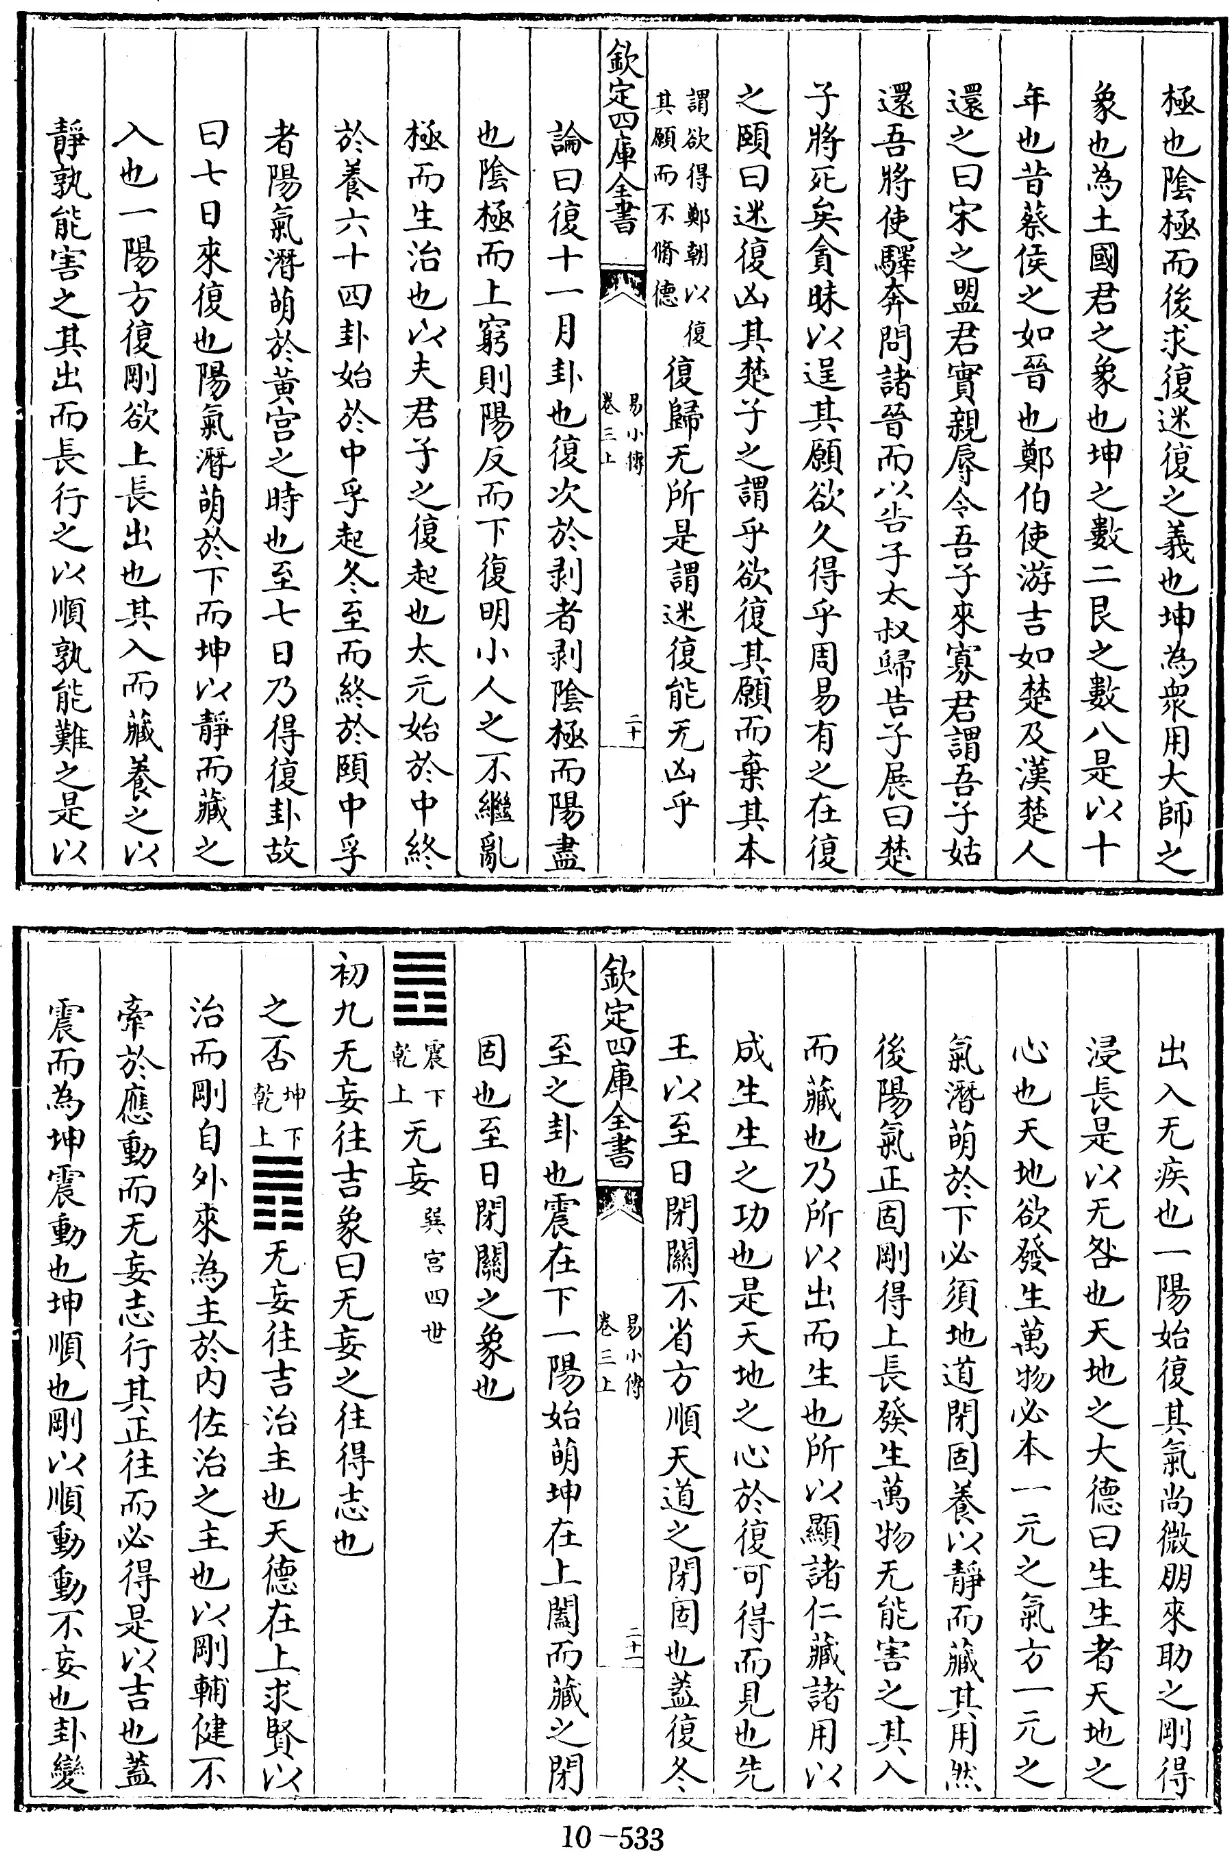 極也陰極而後求復迷復之義也坤為衆用大師之
象也為土國君之象也坤之數二艮之數八是以十
年也昔蔡侯之如晉也鄭伯使游吉如楚及漢楚人
還之曰宋之盟君實親辱今吾子來寡君謂吾子姑
還吾將使驛奔問諸晉而以告子太叔歸告子展曰楚
子將死矣貪昧以逞其願欲久得乎周易有之在復
之頤曰迷復凶其楚子之謂乎欲復其願而棄其本
謂欲得鄭朝以復
其願而不脩德
復歸无所是謂迷復能无凶乎
欽定四庫全書
易小傳
卷三上
二十
論曰復十一月卦也復次於剥者剥陰極而陽盡
也陰極而上窮則陽反而下復明小人之不繼亂
極而生治也以夫君子之復起也太元始於中終
於養六十四卦始於中孚起冬至而終於頤中孚
者陽氣潛萌於黄宫之時也至七日乃得復卦故
曰七日來復也陽氣潛萌於下而坤以靜而藏之
入也一陽方復剛欲上長出也其入而藏養之以
靜孰能害之其出而長行之以順孰能難之是以
出入无疾也一陽始復其氣尚微朋來助之剛得
浸長是以无咎也天地之大德曰生生者天地之
心也天地欲發生萬物必本一元之氣方一元之
氣潛萌於下必須地道閉固養以靜而藏其用然
後陽氣正固剛得上長發生萬物无能害之其入
而藏也乃所以出而生也所以顯諸仁藏諸用以
成生生之功也是天地之心於復可得而見也先
王以至日閉關不省方順天道之閉固也蓋復冬
欽定四庫全書
易小傳
卷三上
二十一
至之卦也震在下一陽始萌坤在上闔而藏之閉
固也至日閉關之象也
震下
乾上
无妄
巽宫四世
初九无妄往吉象曰无妄之往得志也
之否
坤下
乾上
无妄往吉治主也天德在上求賢以
治而剛自外來為主於内佐治之主也以剛輔健不
牽於應動而无妄志行其正往而必得是以吉也蓋
震而為坤震動也坤順也剛以順動動不妄也卦變
10-533